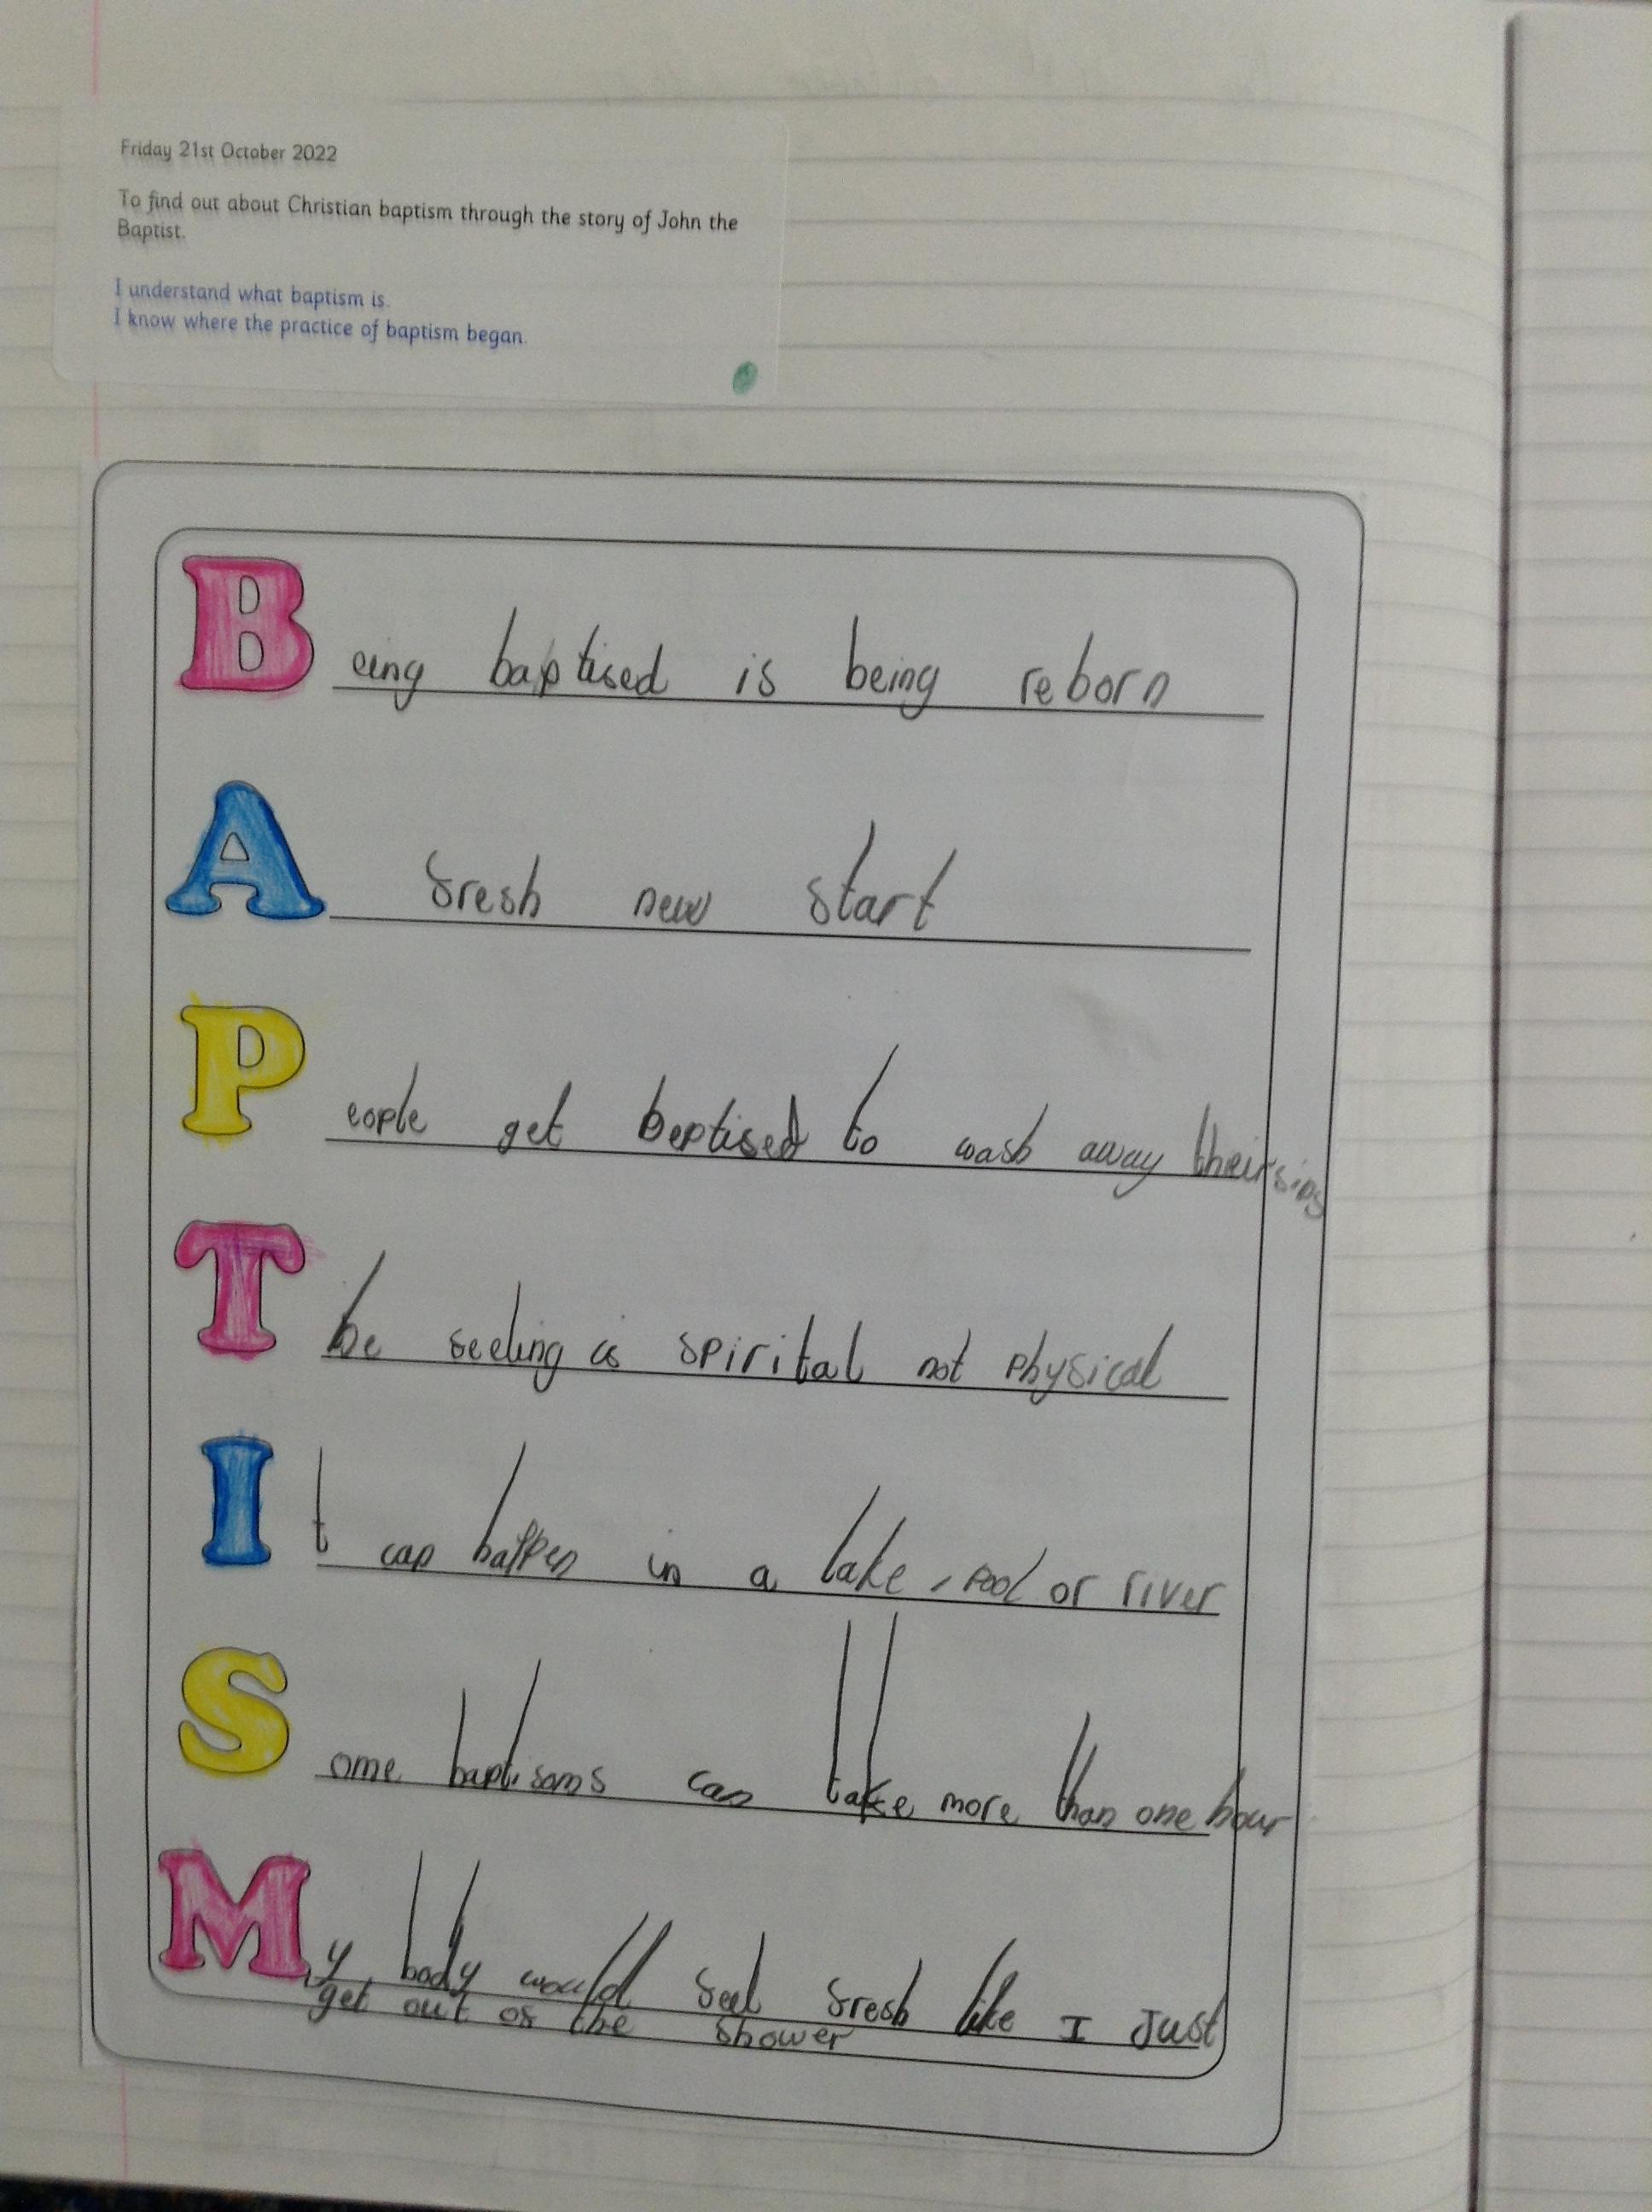 Friday 21st October 2022
To find out about Christian baptism through the story of John the
Baptist.
I understand what baptism is.
I know where the practice of baptism began.
Being baptised is being reborn
A fresh new start
People get beptised to wash away their sins
The feeling is spirital not physical
It can happen in a lake, pool or river
Some baptisoms can take more than one hour
My body would feel fresh like I Just
get out of the shower